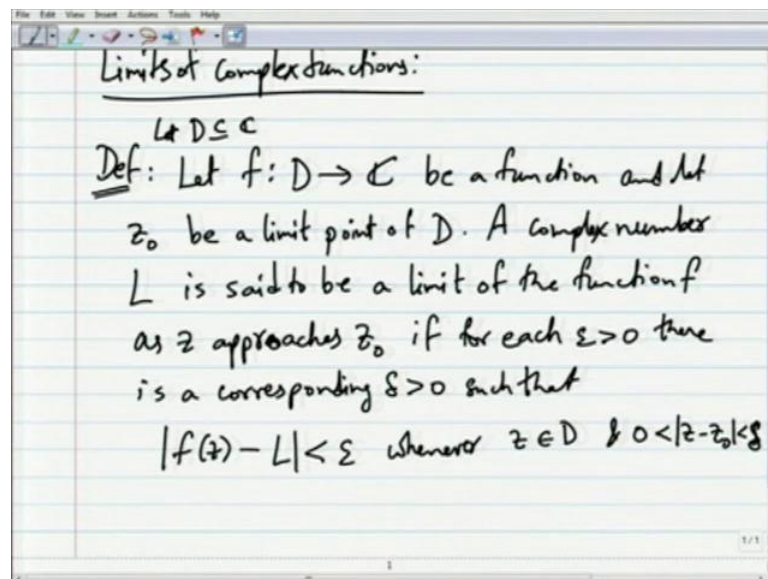 File Edit View Insert Actions Tools Help
Limits of complex functions:
Let D ⊆ ℂ
Def: Let f: D → ℂ be a function and let
z₀ be a limit point of D. A complex number
L is said to be a limit of the function f
as z approaches z₀ if for each ε>0 there
is a corresponding δ>0 such that
|f(z) - L| < ε whenever z ∈ D & 0<|z-z₀|<δ
1/1
1